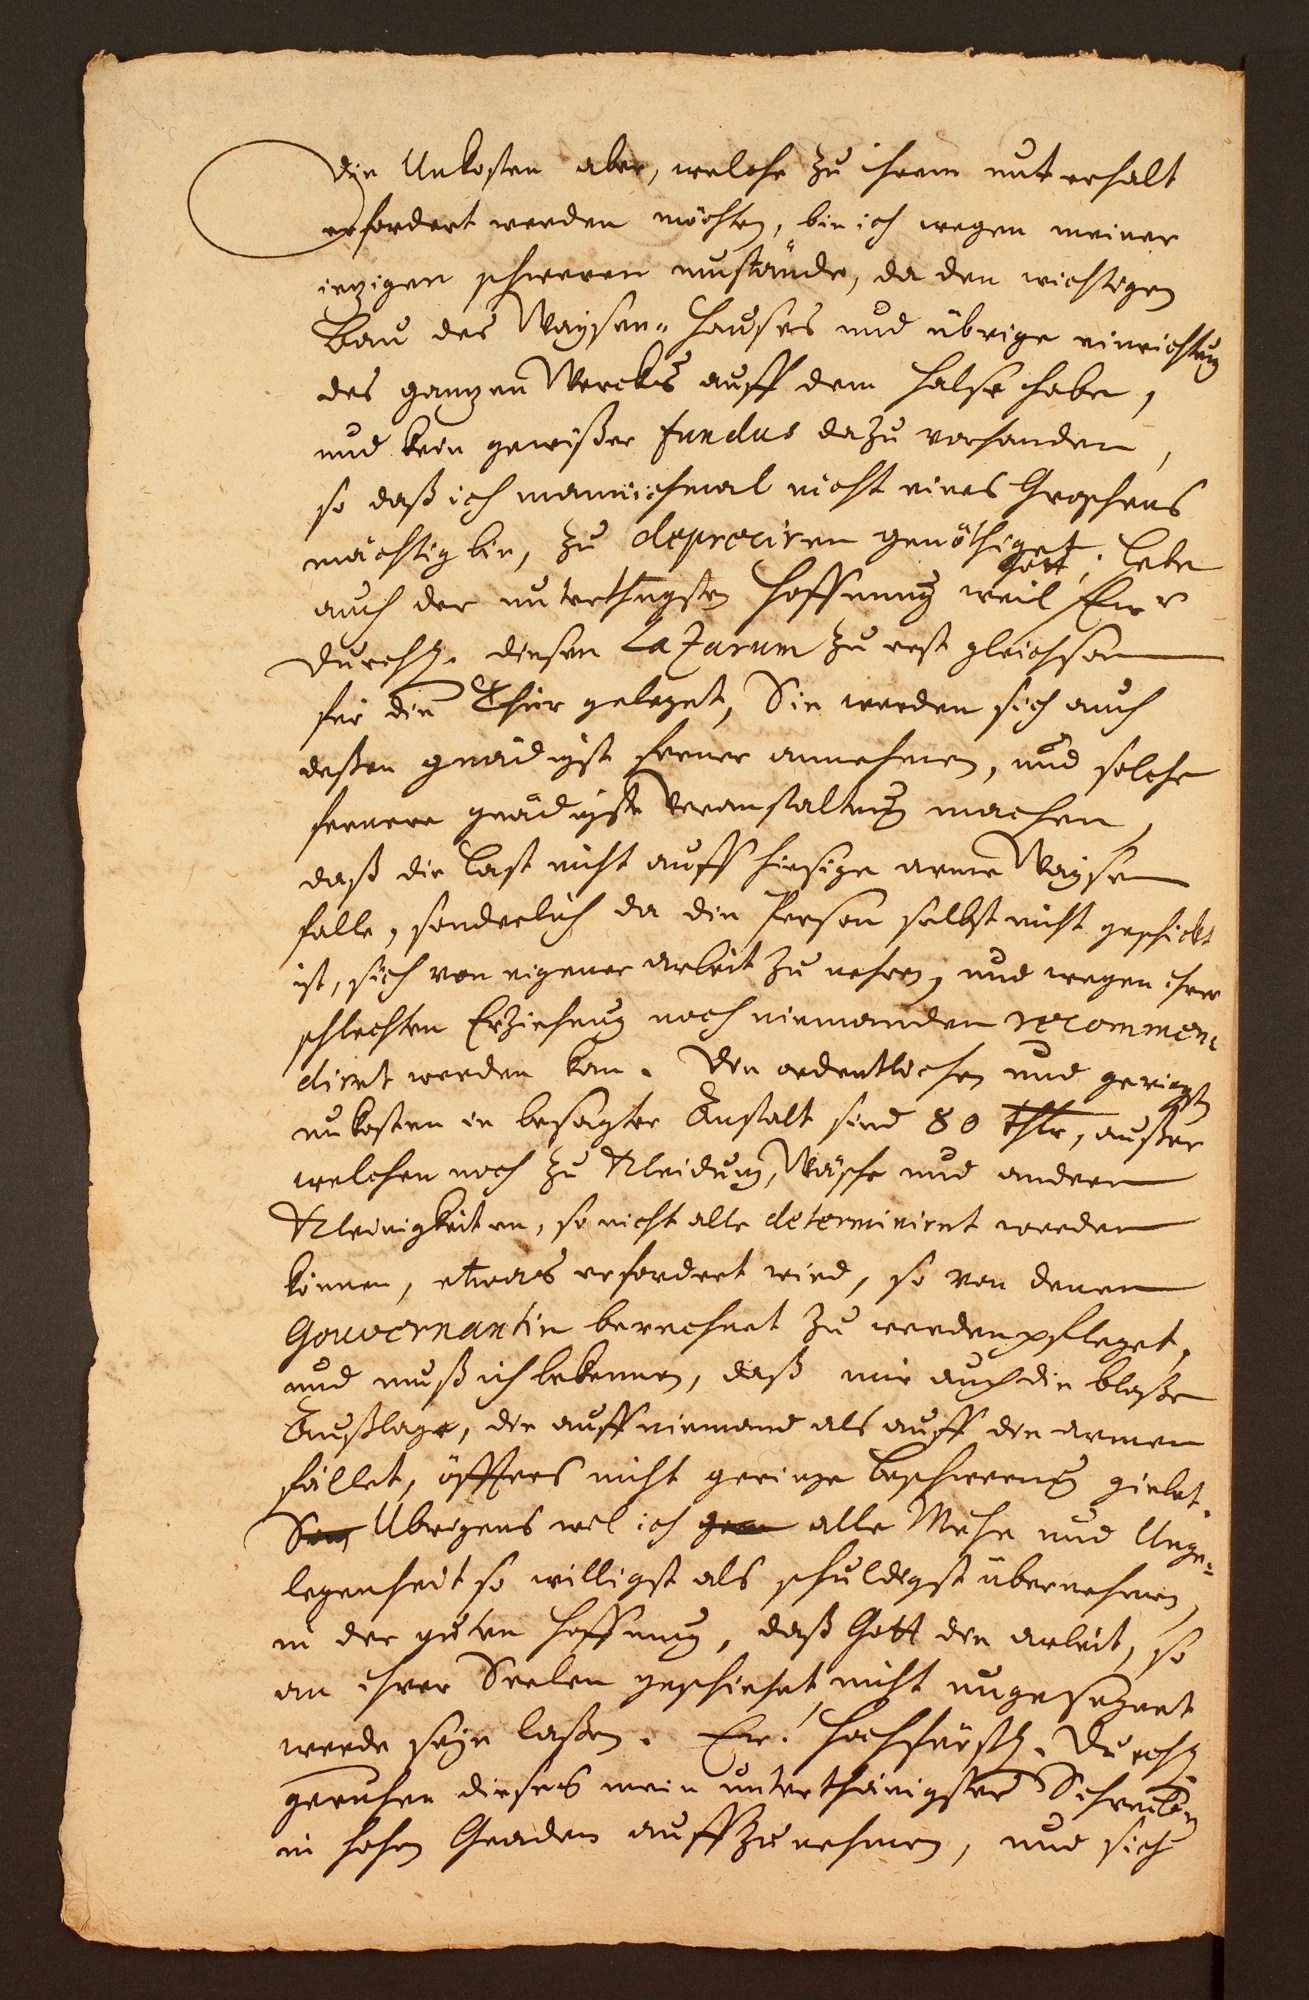 die Unkosten aber, welche zu ihrem unterhalt
erfordert werden möchten, bin ich wegen meiner
ietzigen schweren umstände, da den wichtigen
Bau des Waysen-Hauses und übrige einrichtung
des gantzen Wercks auff dem Halse habe,
und kein gewißer fundus dazu vorhanden,
so daß ich mannichmal nicht eines Groschens
mächtig bin, zu depreciren genöthiget; Lebe
auch der unterthgsten Hoffnung weil Gott Ewr
Durchl. diesen Lazarum zu erst gleichsam
für die Thür geleget, Sie werden sich auch
deßen gnädigst ferner annehmen, und solche
fernere gnädigste Veranstaltung machen,
daß die Last nicht auff hiesige arme Waysen
falle, sonderlich da die Person selbst nicht geschickt
ist, sich von eigener arbeit zu nehren, und wegen ihrer
schlechten Erziehung noch niemanden recommen-
diret werden kan. Die ordentlichen und geringsten
unkosten in besagter Anstalt sind 80 thlr, außer
welchen noch zu Kleidung, Wäsche und andern
Kleinigkeiten, so nicht alle determiniret werden
können, etwas erfordert wird, so von denen
Gouvernantin berechnet zu werden pfleget,
und muß ich bekennen, daß mir auch die bloße
Außlage, die auff niemand als auff die armen
fället, öffters nicht geringe beschwerung giebet.
Übrigens wil ich alle Mühe und Unge-
legenheit so willigst als schuldigst übernehmen,
in der guten Hoffnung, daß Gott die arbeit, so
an ihrer Seelen geschiehet, nicht ungesegnet
werde seyn laßen. Ew. Hochfürstl. Durchl
geruhen dieses mein unterthänigstes Schreiben
in hohen Gnaden auffzunehmen, und sich